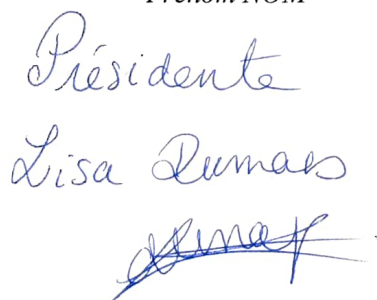 Prénom NOM
Présidente
Lisa Dumas